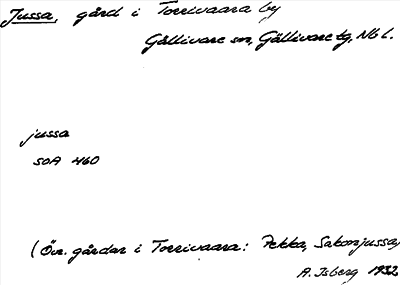 Jussa, gård i Torrivaara by
Gällivare sn, Gällivare tg, Nb l.
jussa
SOA 460
(Övr. gårdar i Torrivaara: Pekka, Sakarijussa)
A. Isberg 1932